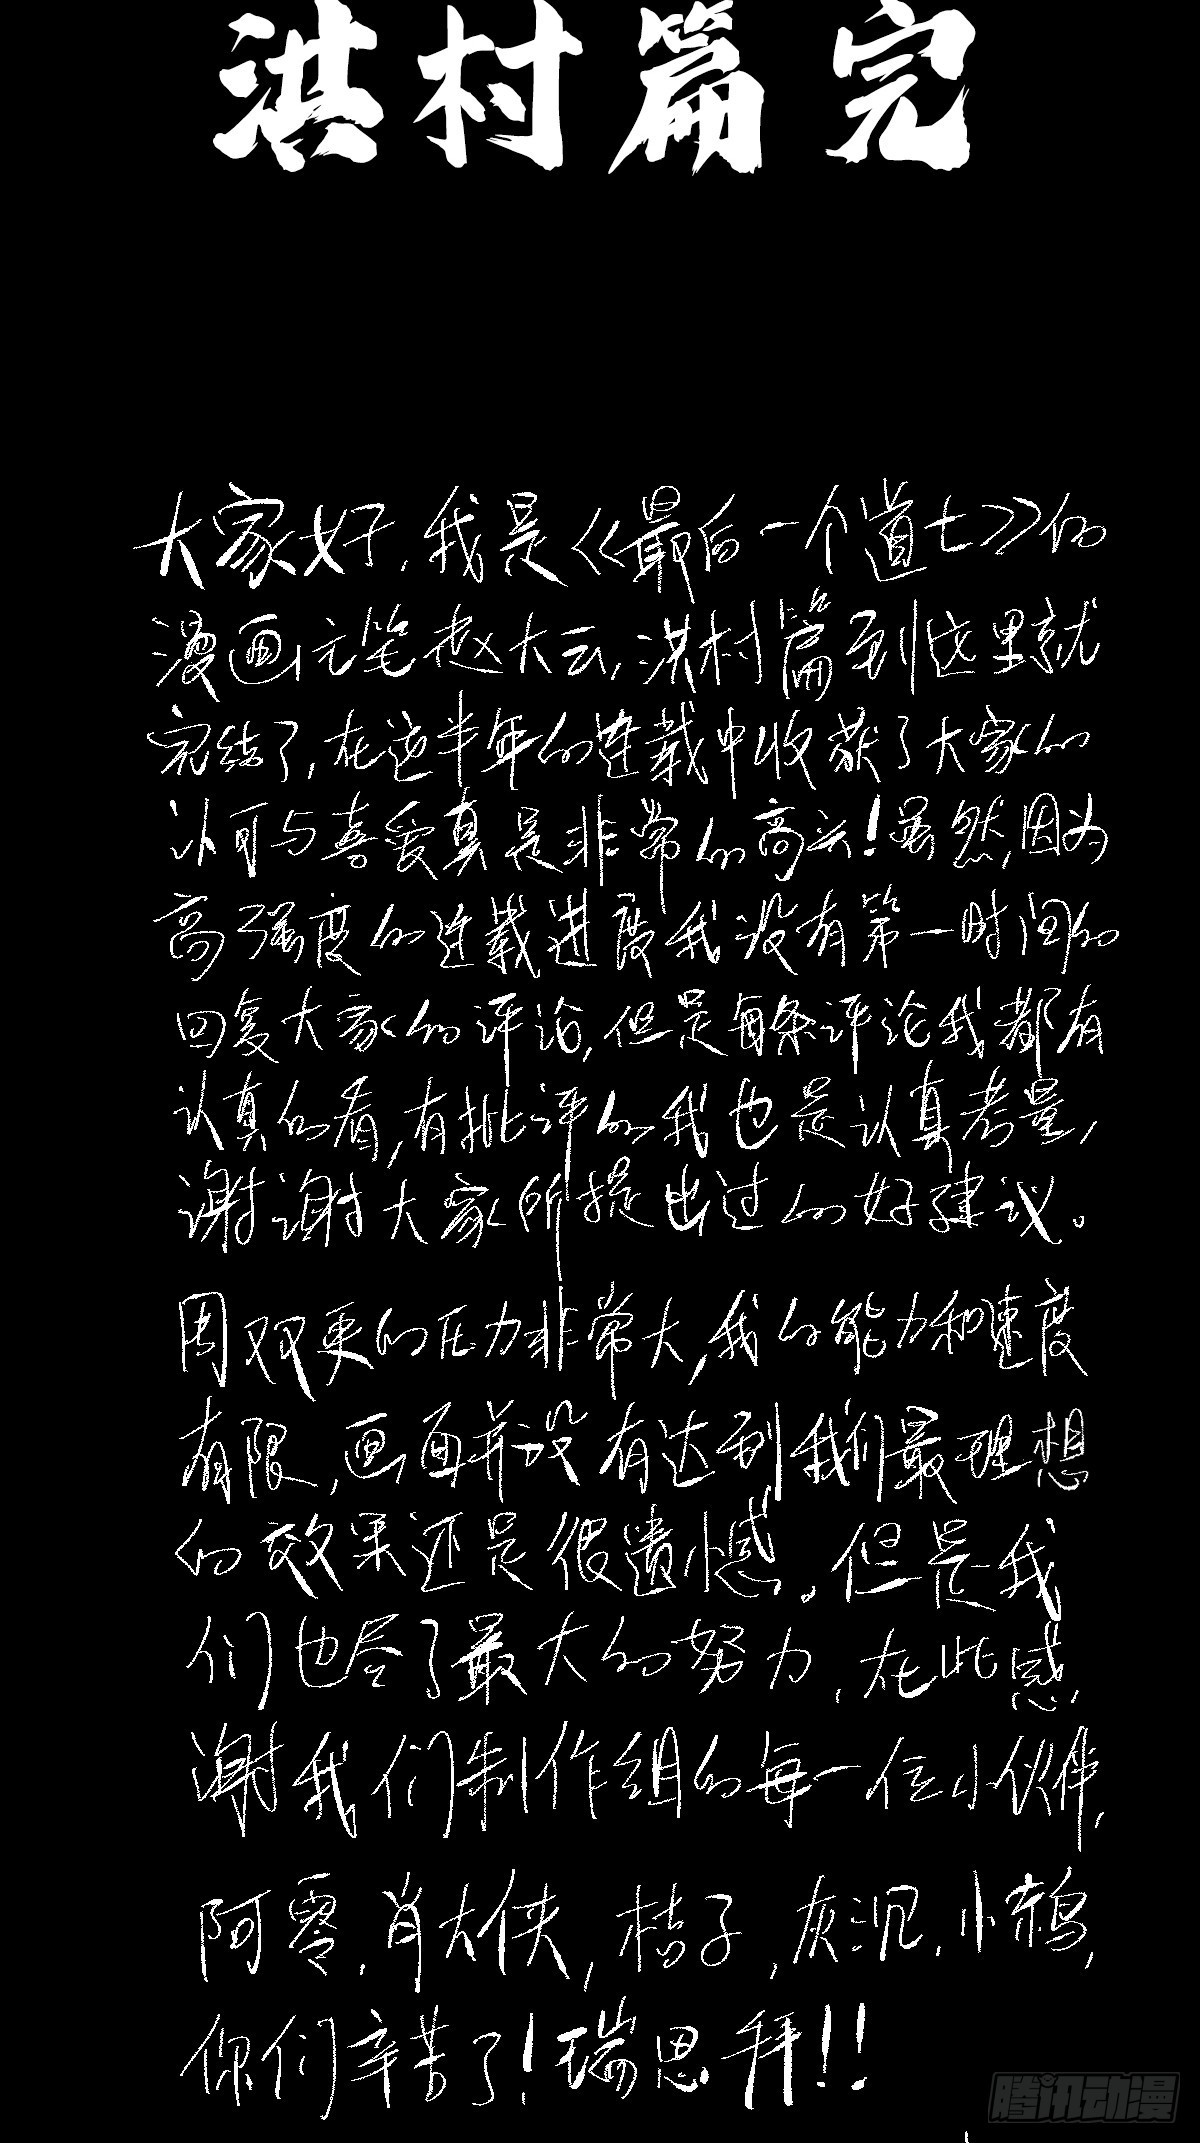 洪村篇完
大家好，我是《最后一个道士》的
漫画主笔赵大云，洪村篇到这里就
完结了，在这半年的连载中收获了大家的
认可与喜爱真是非常的高兴！虽然，因为
高强度的连载进度我没有第一时间的
回复大家的评论，但是每条评论我都有
认真的看，有批评的我也是认真考量，
谢谢大家所提出过的好建议。
周双更的压力非常大，我的能力和速度
有限，画面并没有达到我们最理想
的效果还是很遗憾。但是我
们也尽了最大的努力，在此感
谢我们制作组的每一位小伙伴，
阿零，肖大侠，桔子，灰沉，小鹅，
你们辛苦了！瑞思拜！！
腾讯动漫